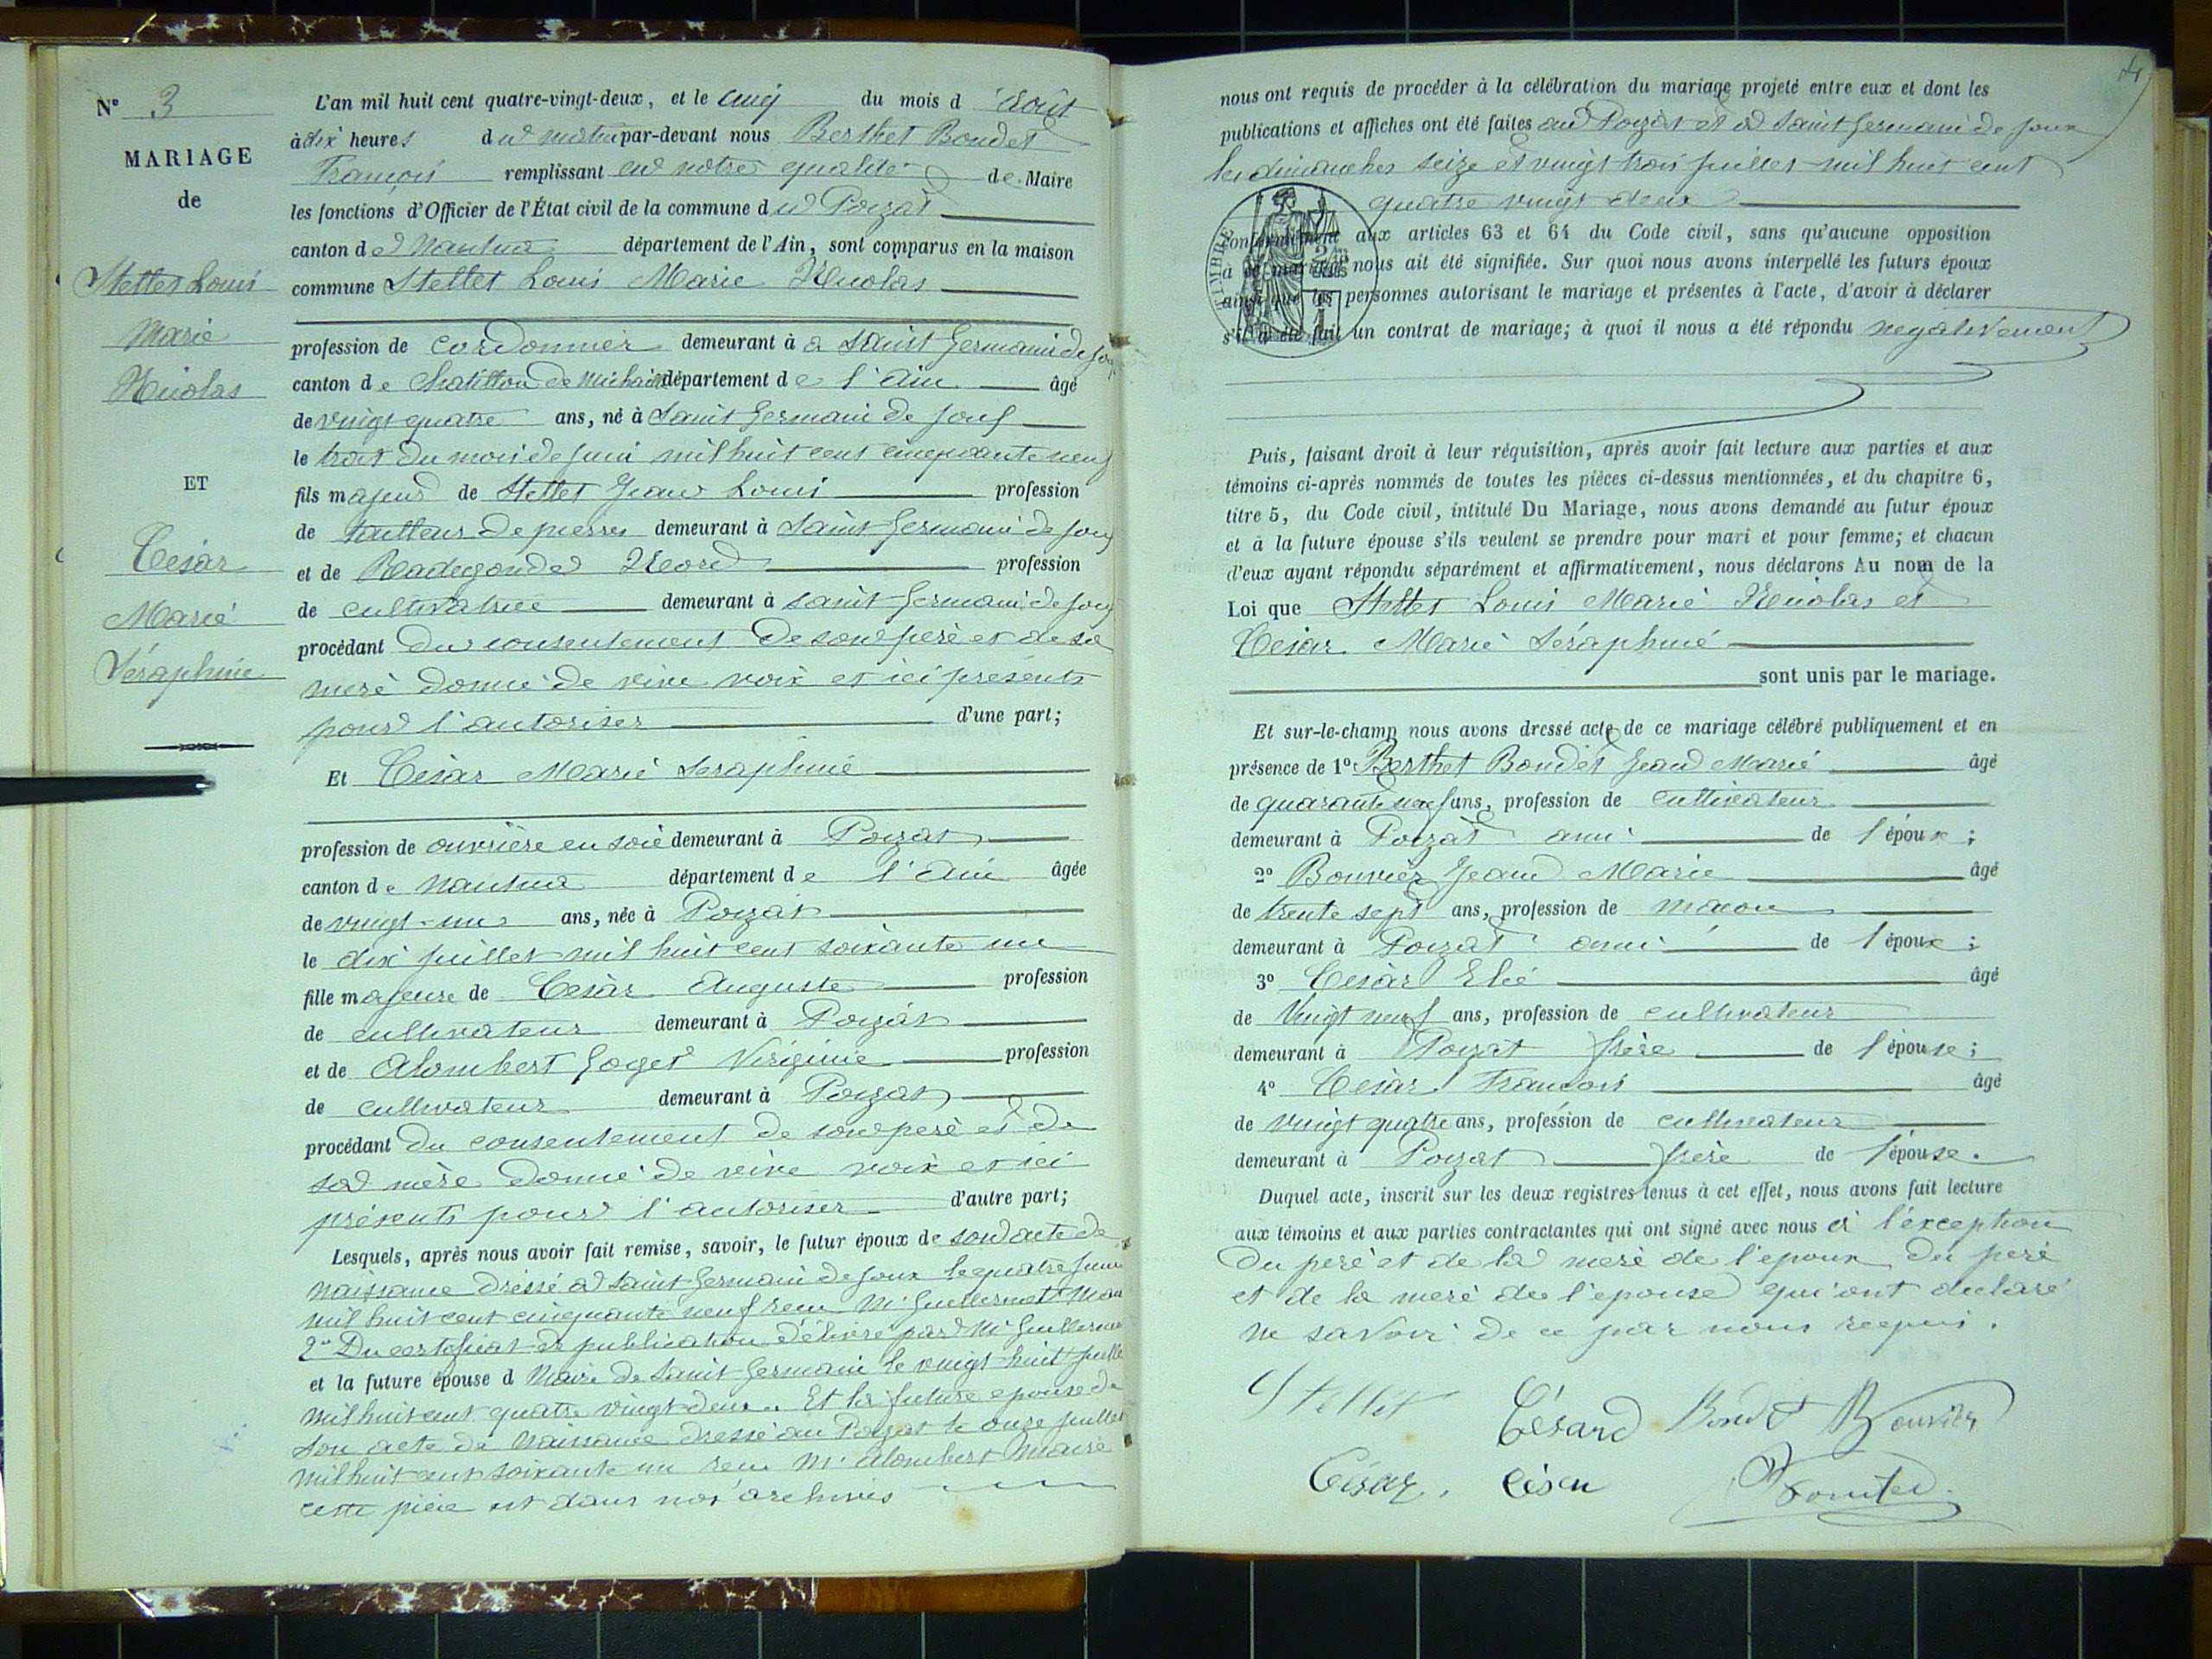 N° 3
MARIAGE
de
Stellet Louis
Marie
Nicolas
ET
César
Marie
Séraphine
L'an mil huit cent quatre-vingt-deux, et le cinq du mois d'août
à dix heures du matin par-devant nous Berthet Bondet
François remplissant en notre qualité de Maire
les fonctions d'Officier de l'État civil de la commune du Poizat
canton de Nantua département de l'Ain, sont comparus en la maison
commune Stellet Louis Marie Nicolas
profession de cordonnier demeurant à a Saint Germain de Joux
canton de Chatillon de Michaille département de l'Ain âgé
de vingt quatre ans, né à Saint Germain de Joux
le trois du mois de juin mil huit cent cinquante neuf
fils majeur de Stellet Jean Louis profession
de tailleur de pierres demeurant à Saint Germain de Joux
et de Radegonde profession
de cultivatrice demeurant à Saint Germain de Joux
procédant du consentement de son père et de sa
mere donné de vive voix et ici présents
pour l'autoriser d'une part;
Et César Marie Séraphine
profession de ouvrière en soie demeurant à Poizat
canton de Nantua département de l'Ain âgée
de vingt-un ans, née à Poizat
le dix juillet mil huit cent soixante un
fille majeure de César Auguste profession
de cultivateur demeurant à Poizat
et de Alombert Goget Virginie profession
de cultivateur demeurant à Poizat
procédant du consentement de son père et de
sa mère donné de vive voix et ici
présents pour l'autoriser d'autre part;
Lesquels, après nous avoir fait remise, savoir, le futur époux de son acte de
naissance dressé a Saint Germain de Joux le quatre juin
mil huit cent cinquante neuf reçu Mr Guillermet Maire
2° Du certificat de publication délivré par Mr Guillermet
et la future épouse d Maire de Saint Germain le vingt huit juillet
mil huit cent quatre vingt deux. Et la future epouse de
son acte de naissance dressé au Poizat le onze juillet
mil huit cent soixante un reçu Mr Alombert Maire
cette pièce est dans nos archives
nous ont requis de procéder à la célébration du mariage projeté entre eux et dont les
publications et affiches ont été faites au Poizat et a Saint Germain de Joux
les dimanches seize et vingt trois juillet mil huit cent
quatre vingt deux
TIMBRE
conformément aux articles 63 et 64 du Code civil, sans qu'aucune opposition
à ce mariage nous ait été signifiée. Sur quoi nous avons interpellé les futurs époux
ainsi que les personnes autorisant le mariage et présentes à l'acte, d'avoir à déclarer
s'il a été fait un contrat de mariage; à quoi il nous a été répondu négativement
Puis, faisant droit à leur réquisition, après avoir fait lecture aux parties et aux
témoins ci-après nommés de toutes les pièces ci-dessus mentionnées, et du chapitre 6,
titre 5, du Code civil, intitulé Du Mariage, nous avons demandé au futur époux
et à la future épouse s'ils veulent se prendre pour mari et pour femme; et chacun
d'eux ayant répondu séparément et affirmativement, nous déclarons Au nom de la
Loi que Stellet Louis Marie Nicolas et
César Marie Séraphine
sont unis par le mariage.
Et sur-le-champ nous avons dressé acte de ce mariage célébré publiquement et en
présence de 1° Berthet Bondet Jean Marie âgé
de quarante neuf ans, profession de cultivateur
demeurant à Poizat ami de l'époux;
2° Bouvier Jean Marie âgé
de trente sept ans, profession de macon
demeurant à Poizat ami de l'époux;
3° César Elie âgé
de Vingt neuf ans, profession de cultivateur
demeurant à Poizat frère de l'épouse;
4° César François âgé
de vingt quatre ans, profession de cultivateur
demeurant à Poizat frère de l'épouse.
Duquel acte, inscrit sur les deux registres tenus à cet effet, nous avons fait lecture
aux témoins et aux parties contractantes qui ont signé avec nous à l'exception
du père et de la mere de l'epoux du pere
et de la mere de l'epouse qui ont declaré
ne savoir de ce par nous requis.
Stellet César Bondet Bouvier
César. César Bondet